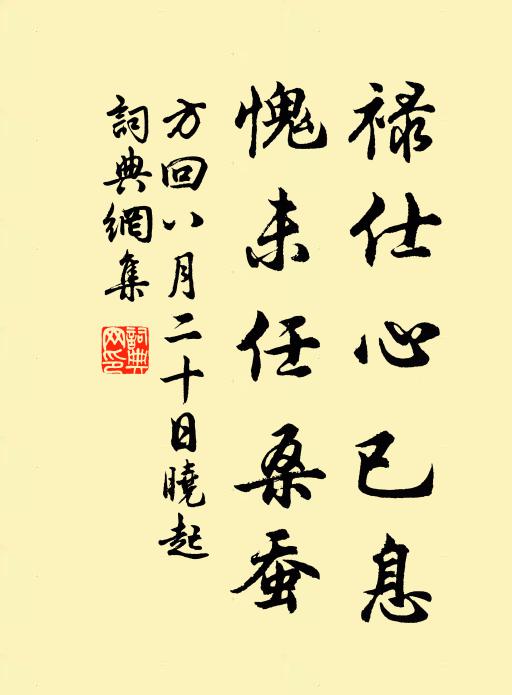 禄仕心已息
愧未任桑蚕
方回八月二十日曉起
詞典網集
詞典網印